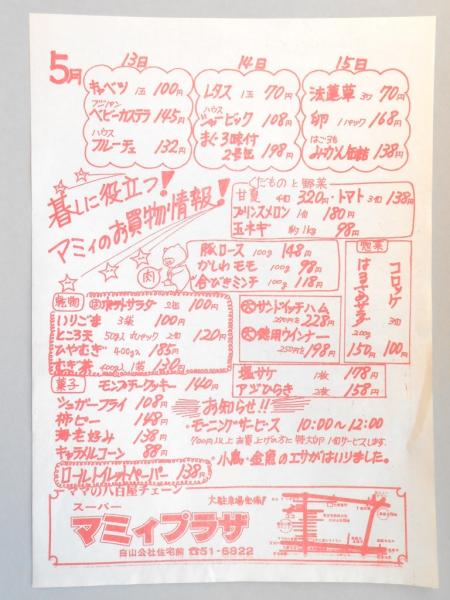 5月
13日
キャベツ 1玉 100円
フジパン
ベビーカステラ 145円
ハウス
フルーチェ 132円
14日
レタス 1玉 70円
ハウス
シャービック 108円
まぐろ味付
2号缶 198円
15日
法蓮草 3ワ 70円
卵 1パック 168円
はごろも
みかん缶詰 138円
暮しに役立つ!
マミィのお買物情報!
くだものと野菜
甘夏 4コ 320円・トマト 3コ 138円
プリンスメロン 1コ 180円
玉ネギ 約1kg 98円
肉
豚ロース 100g 148円
かしわモモ 100g 98円
合びきミンチ 100g 118円
惣菜
コロッケ 3コ 100円
はるさめサラダ 200g 150円
乾物
ポテトサラダ 100円
いりごま 3袋 100円
ところ天 120円
ひやむぎ 400g入 185円
むぎ茶 400g入 1袋 130円
サンドイッチハム
228円
徳用ウインナー
198円
塩サケ 1枚 178円
アジひらき 2枚 158円
菓子
モンブラークッキー 140円
シュガーフライ 108円
柿ピー 148円
海老好み 138円
キャラメルコーン 88円
ロールトイレットペーパー 138円
お知らせ!!
モーニングサービス 10:00〜12:00
700円以上お買上げの方に特大卵1コサービスします。
小鳥・金魚のエサがはいりました。
ママの八百屋チェーン
スーパー
マミィプラザ
白山公社住宅前 ☎51-6822
大駐車場完備!